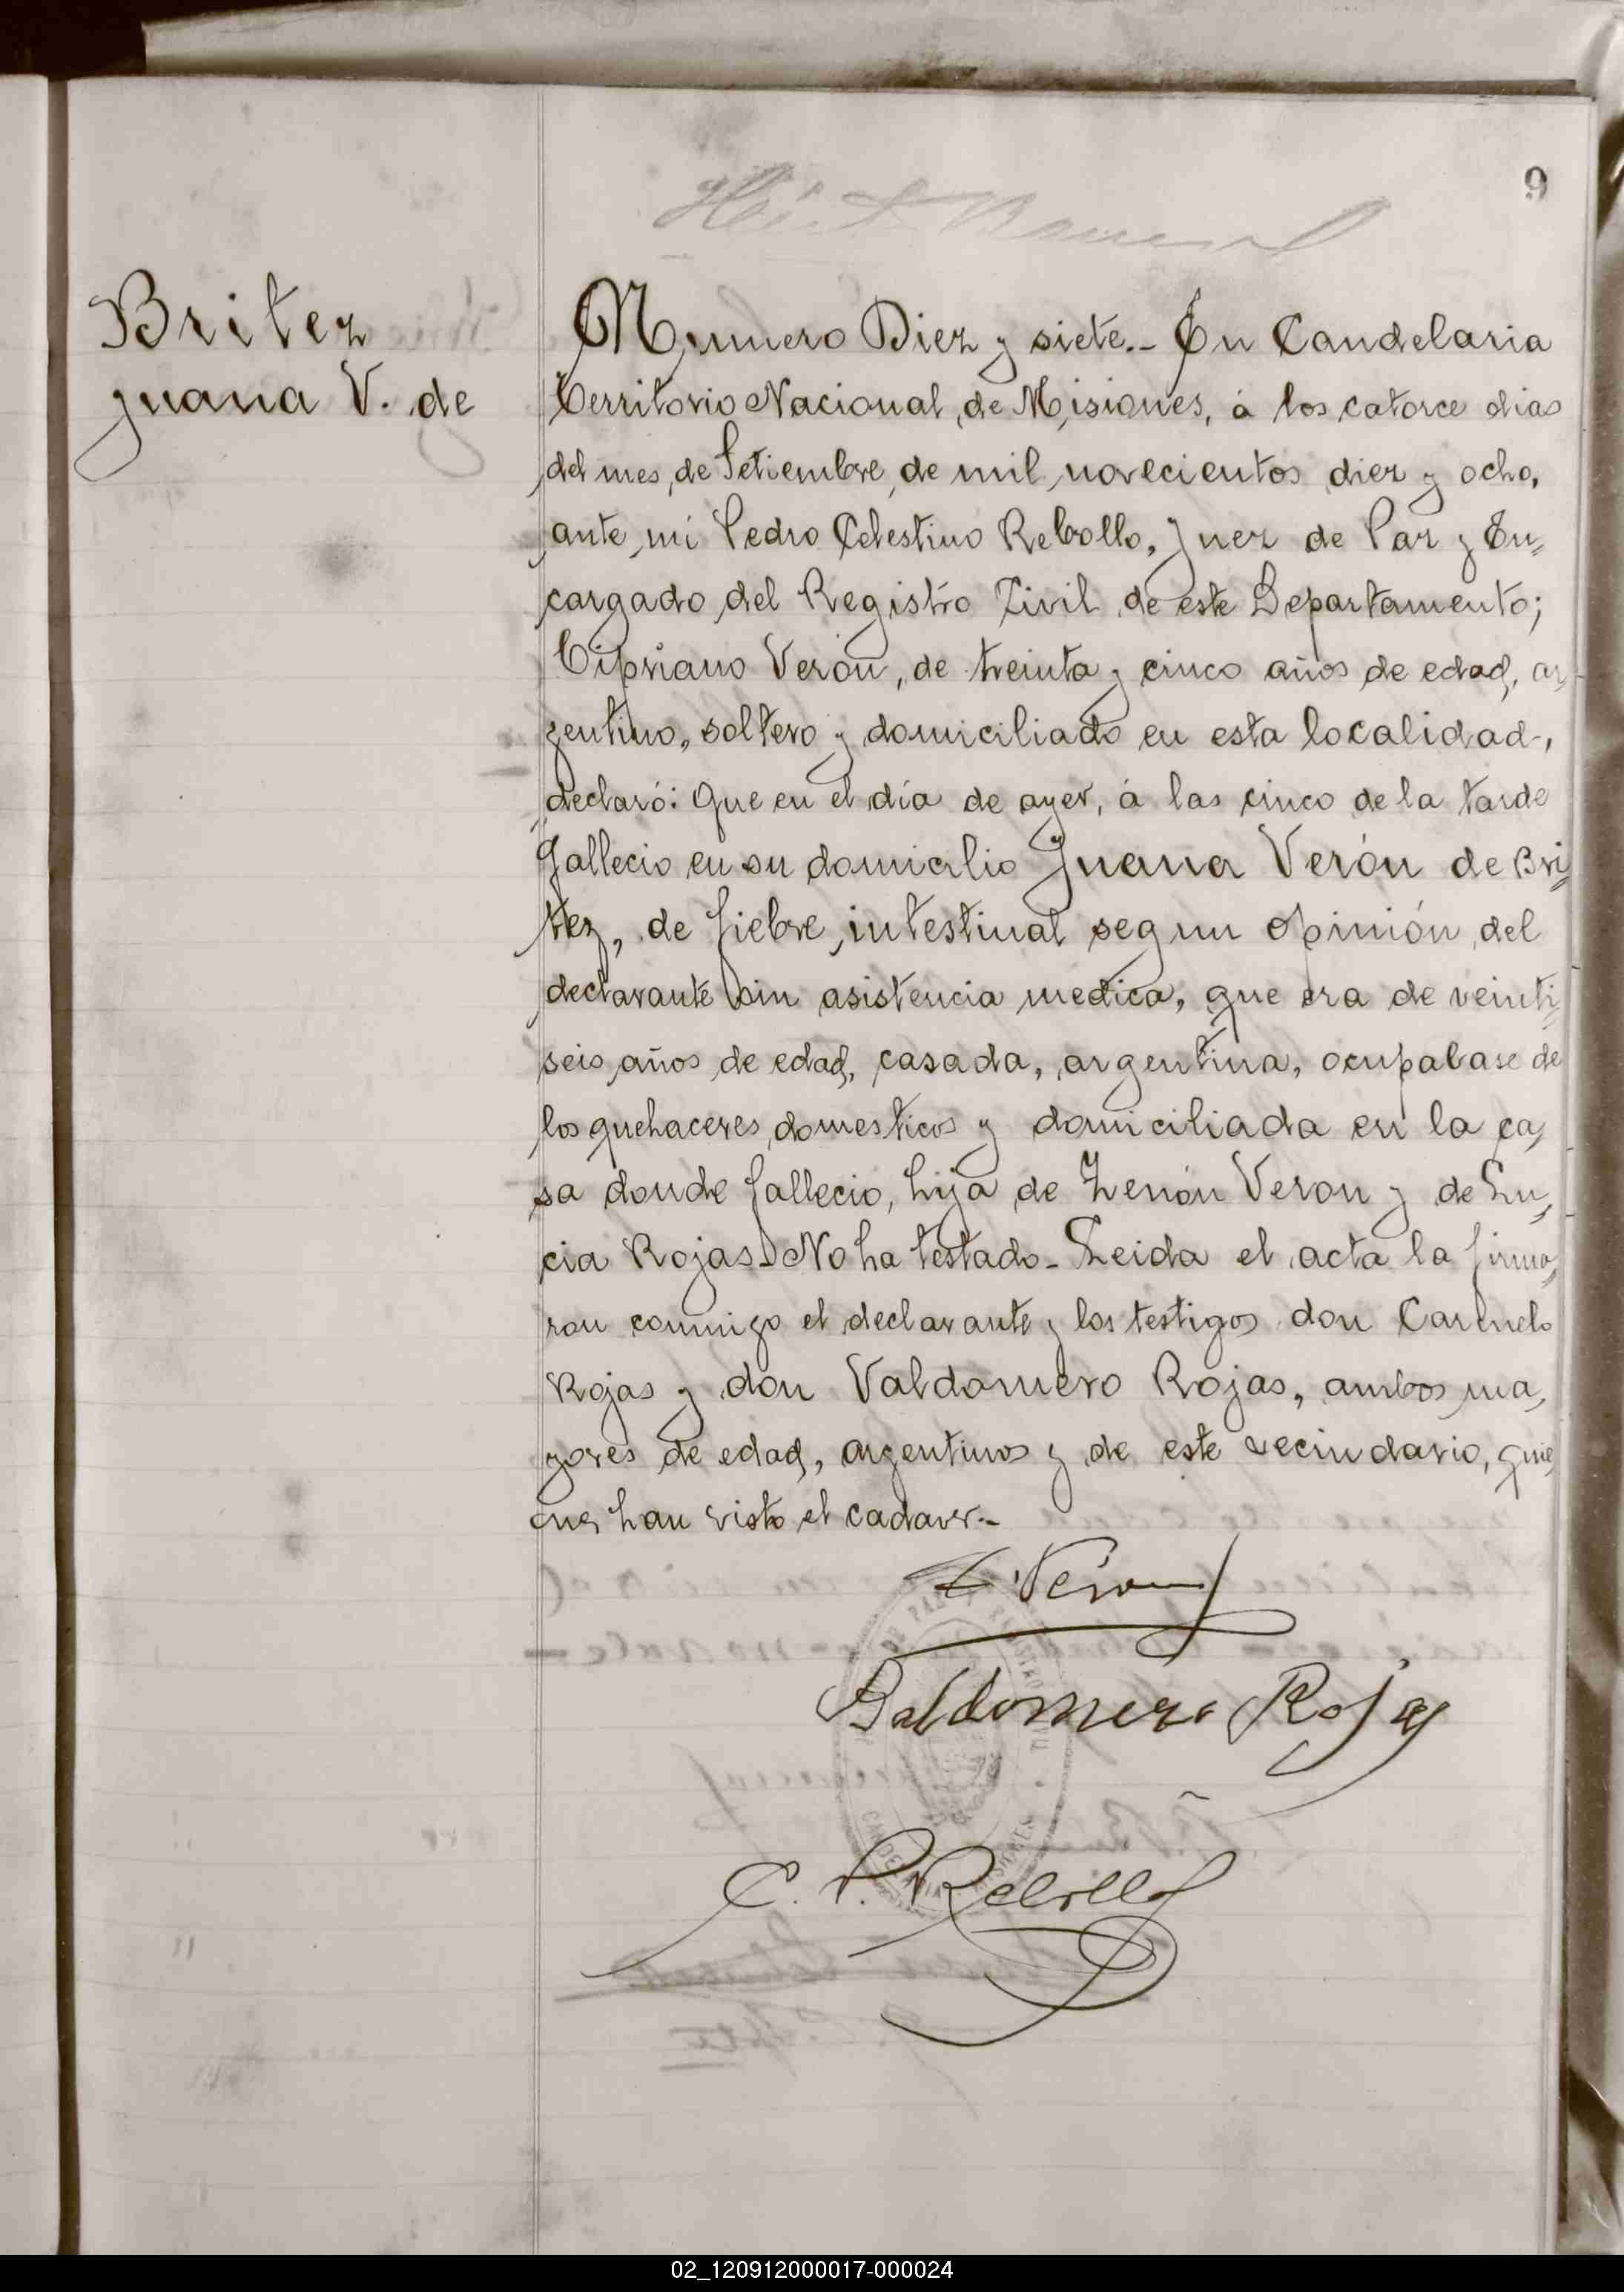 9
Britez
Juana V. de
Numero Diez y siete.- En Candelaria
Territorio Nacional de Misiones, á los catorce dias
del mes de Setiembre de mil novecientos diez y ocho,
ante mi Pedro Celestino Rebollo, Juez de Paz y En-
cargado del Registro Civil de este Departamento;
Cipriano Verón, de treinta y cinco años de edad, ar-
gentino, soltero y domiciliado en esta localidad,
declaró: Que en el día de ayer, á las cinco de la tarde
fallecio en su domicilio Juana Verón de Bri-
tez, de fiebre intestinal segun opinión del
declarante sin asistencia medica, que era de veinti-
seis años de edad, casada, argentina, ocupabase de
los quehaceres domesticos y domiciliada en la ca-
sa donde fallecio, hija de Zenón Veron y de Lu-
cia Rojas. No ha testado- Leida el acta la firma-
ron conmigo el declarante y los testigos don Carmelo
Rojas y don Valdomero Rojas, ambos ma-
yores de edad, argentinos y de este vecindario, quie-
nes han visto el cadaver.-
Verón
Baldomero Rojas
C. P. Rebollo
02_120912000017-000024